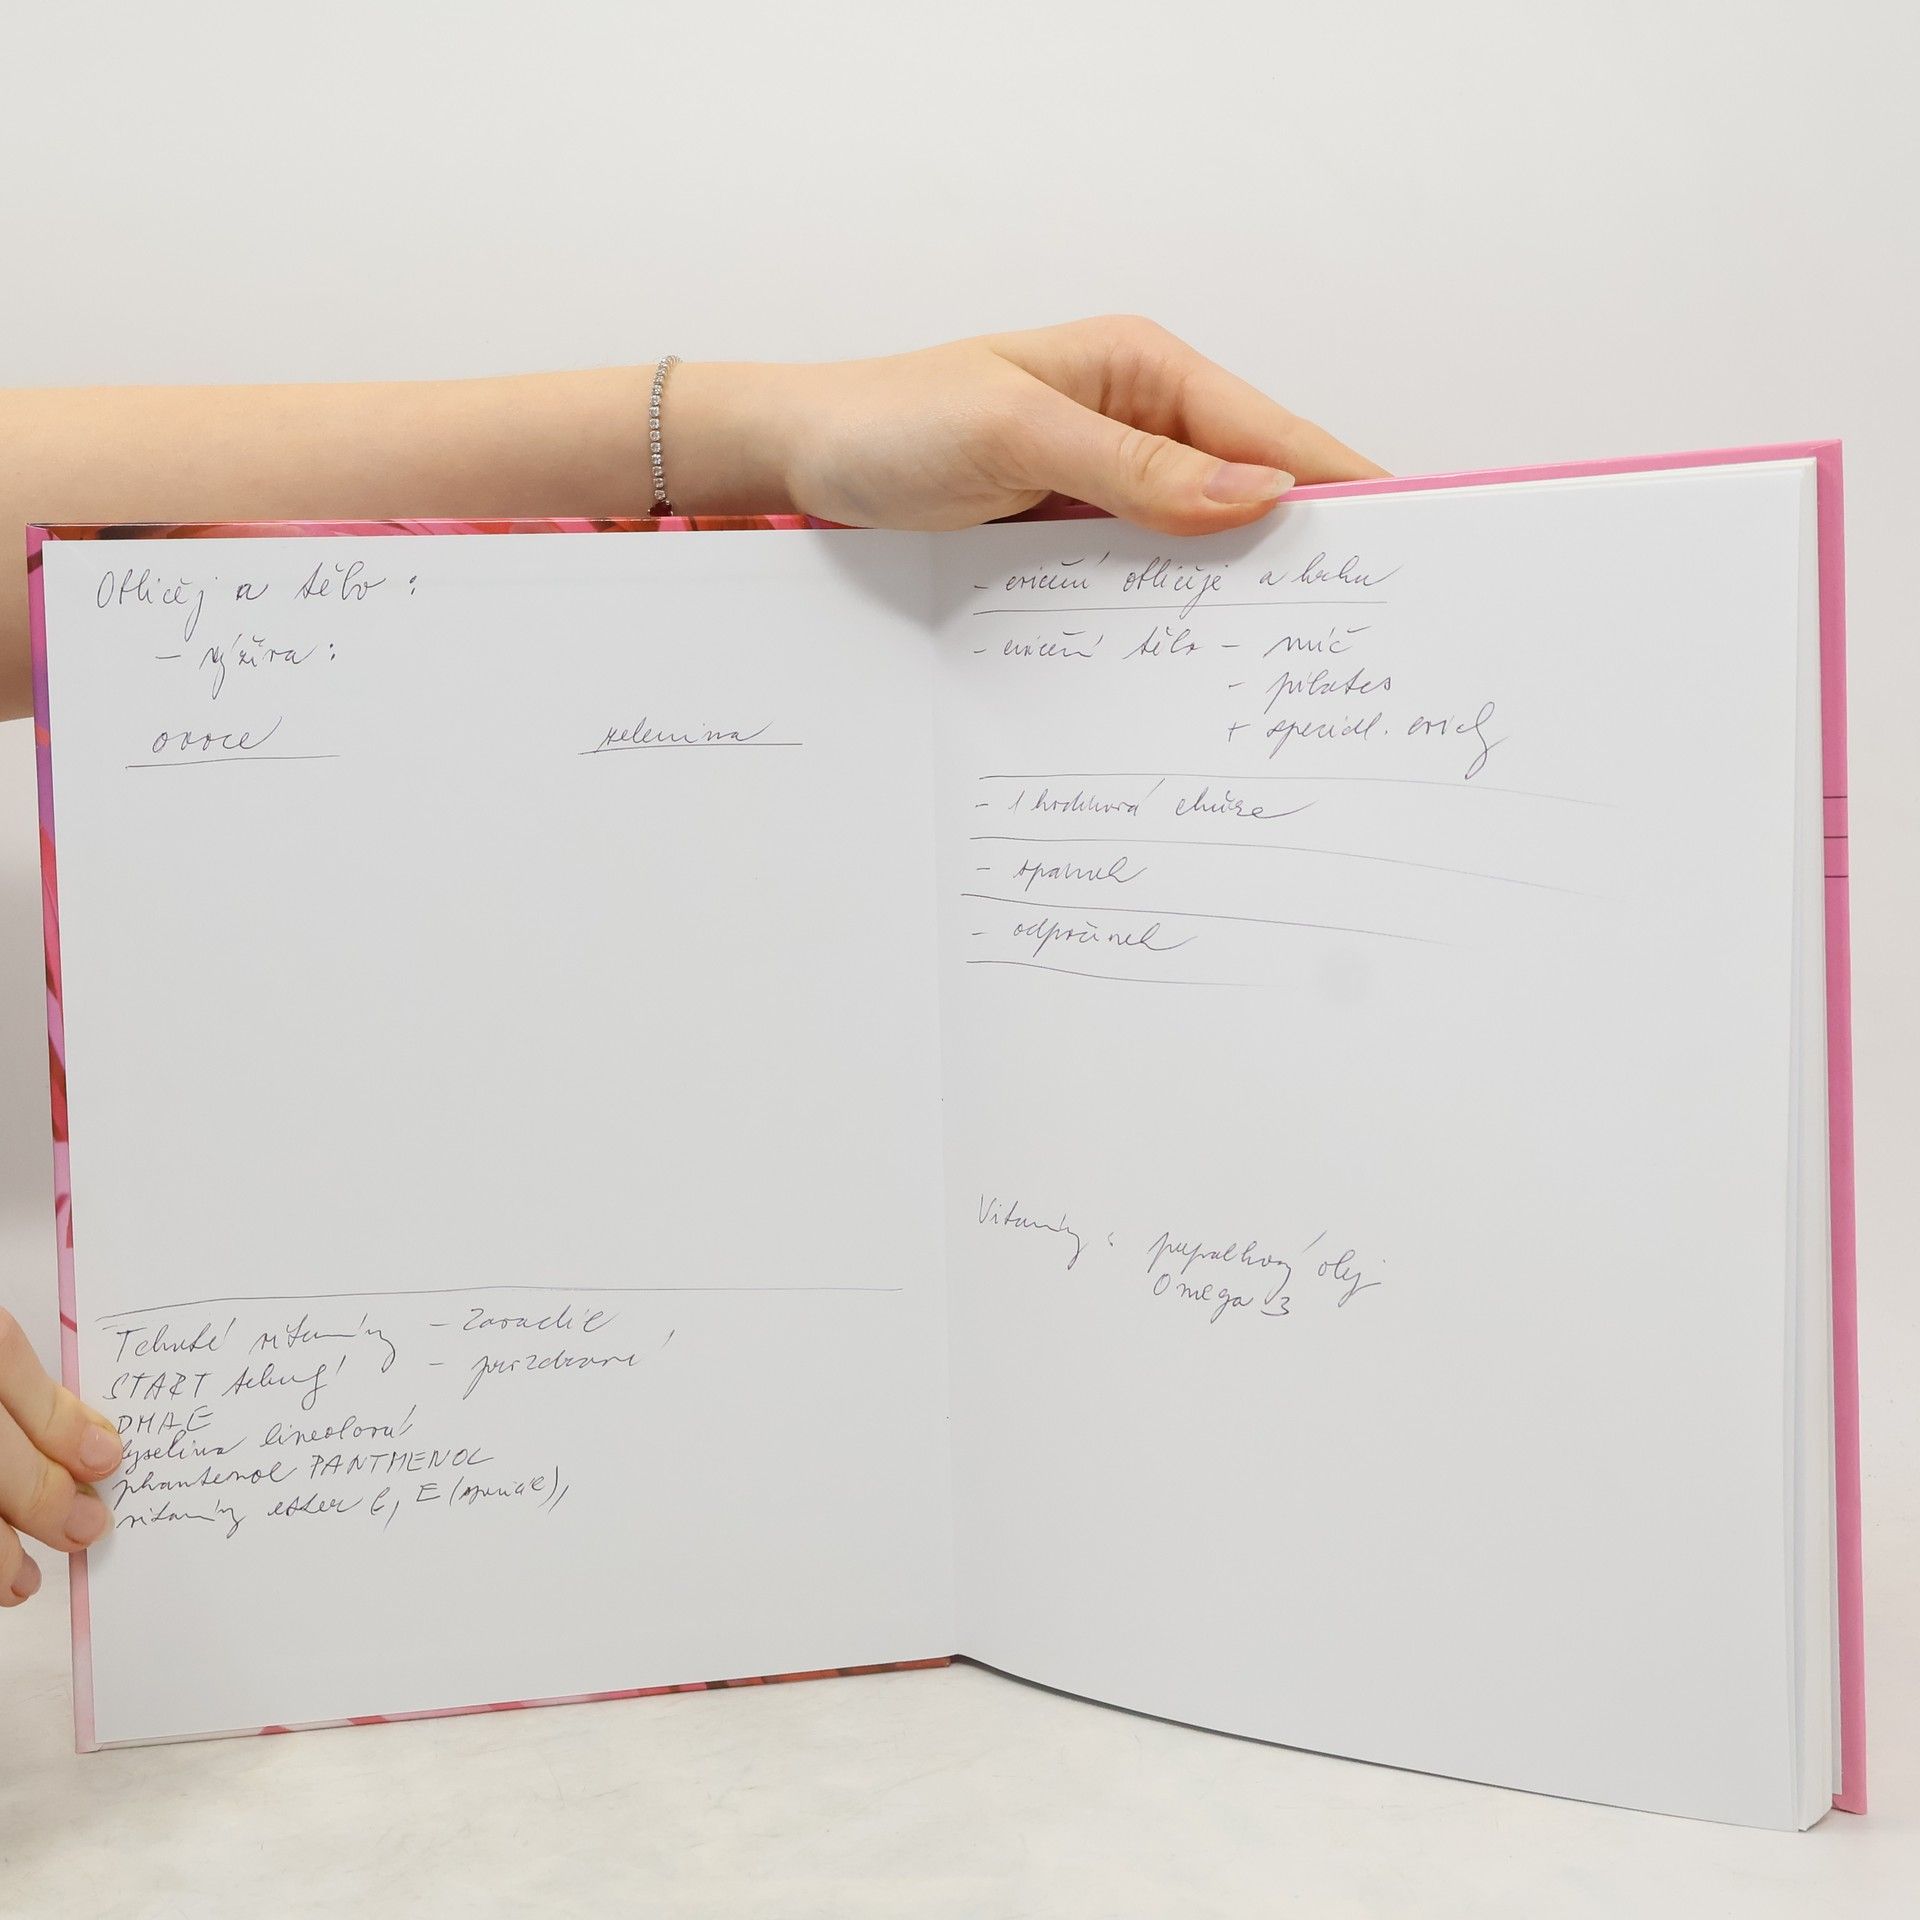 Obličej a tělo :
- výživa :
ovoce
zelenina
Tekuté vitamíny - Zaradič
START - prozdraví
DMAE
kyselina lineolová
phantenol PANTHENOL
vitamíny ester C, E
- cvičení obličeje a krku
- cvičení tělo - míč
- pilates
+ speciál. cviky
- 1 hodinová chůze
- spánek
- odpočinek
Vitamíny : pupalkový olej
Omega 3